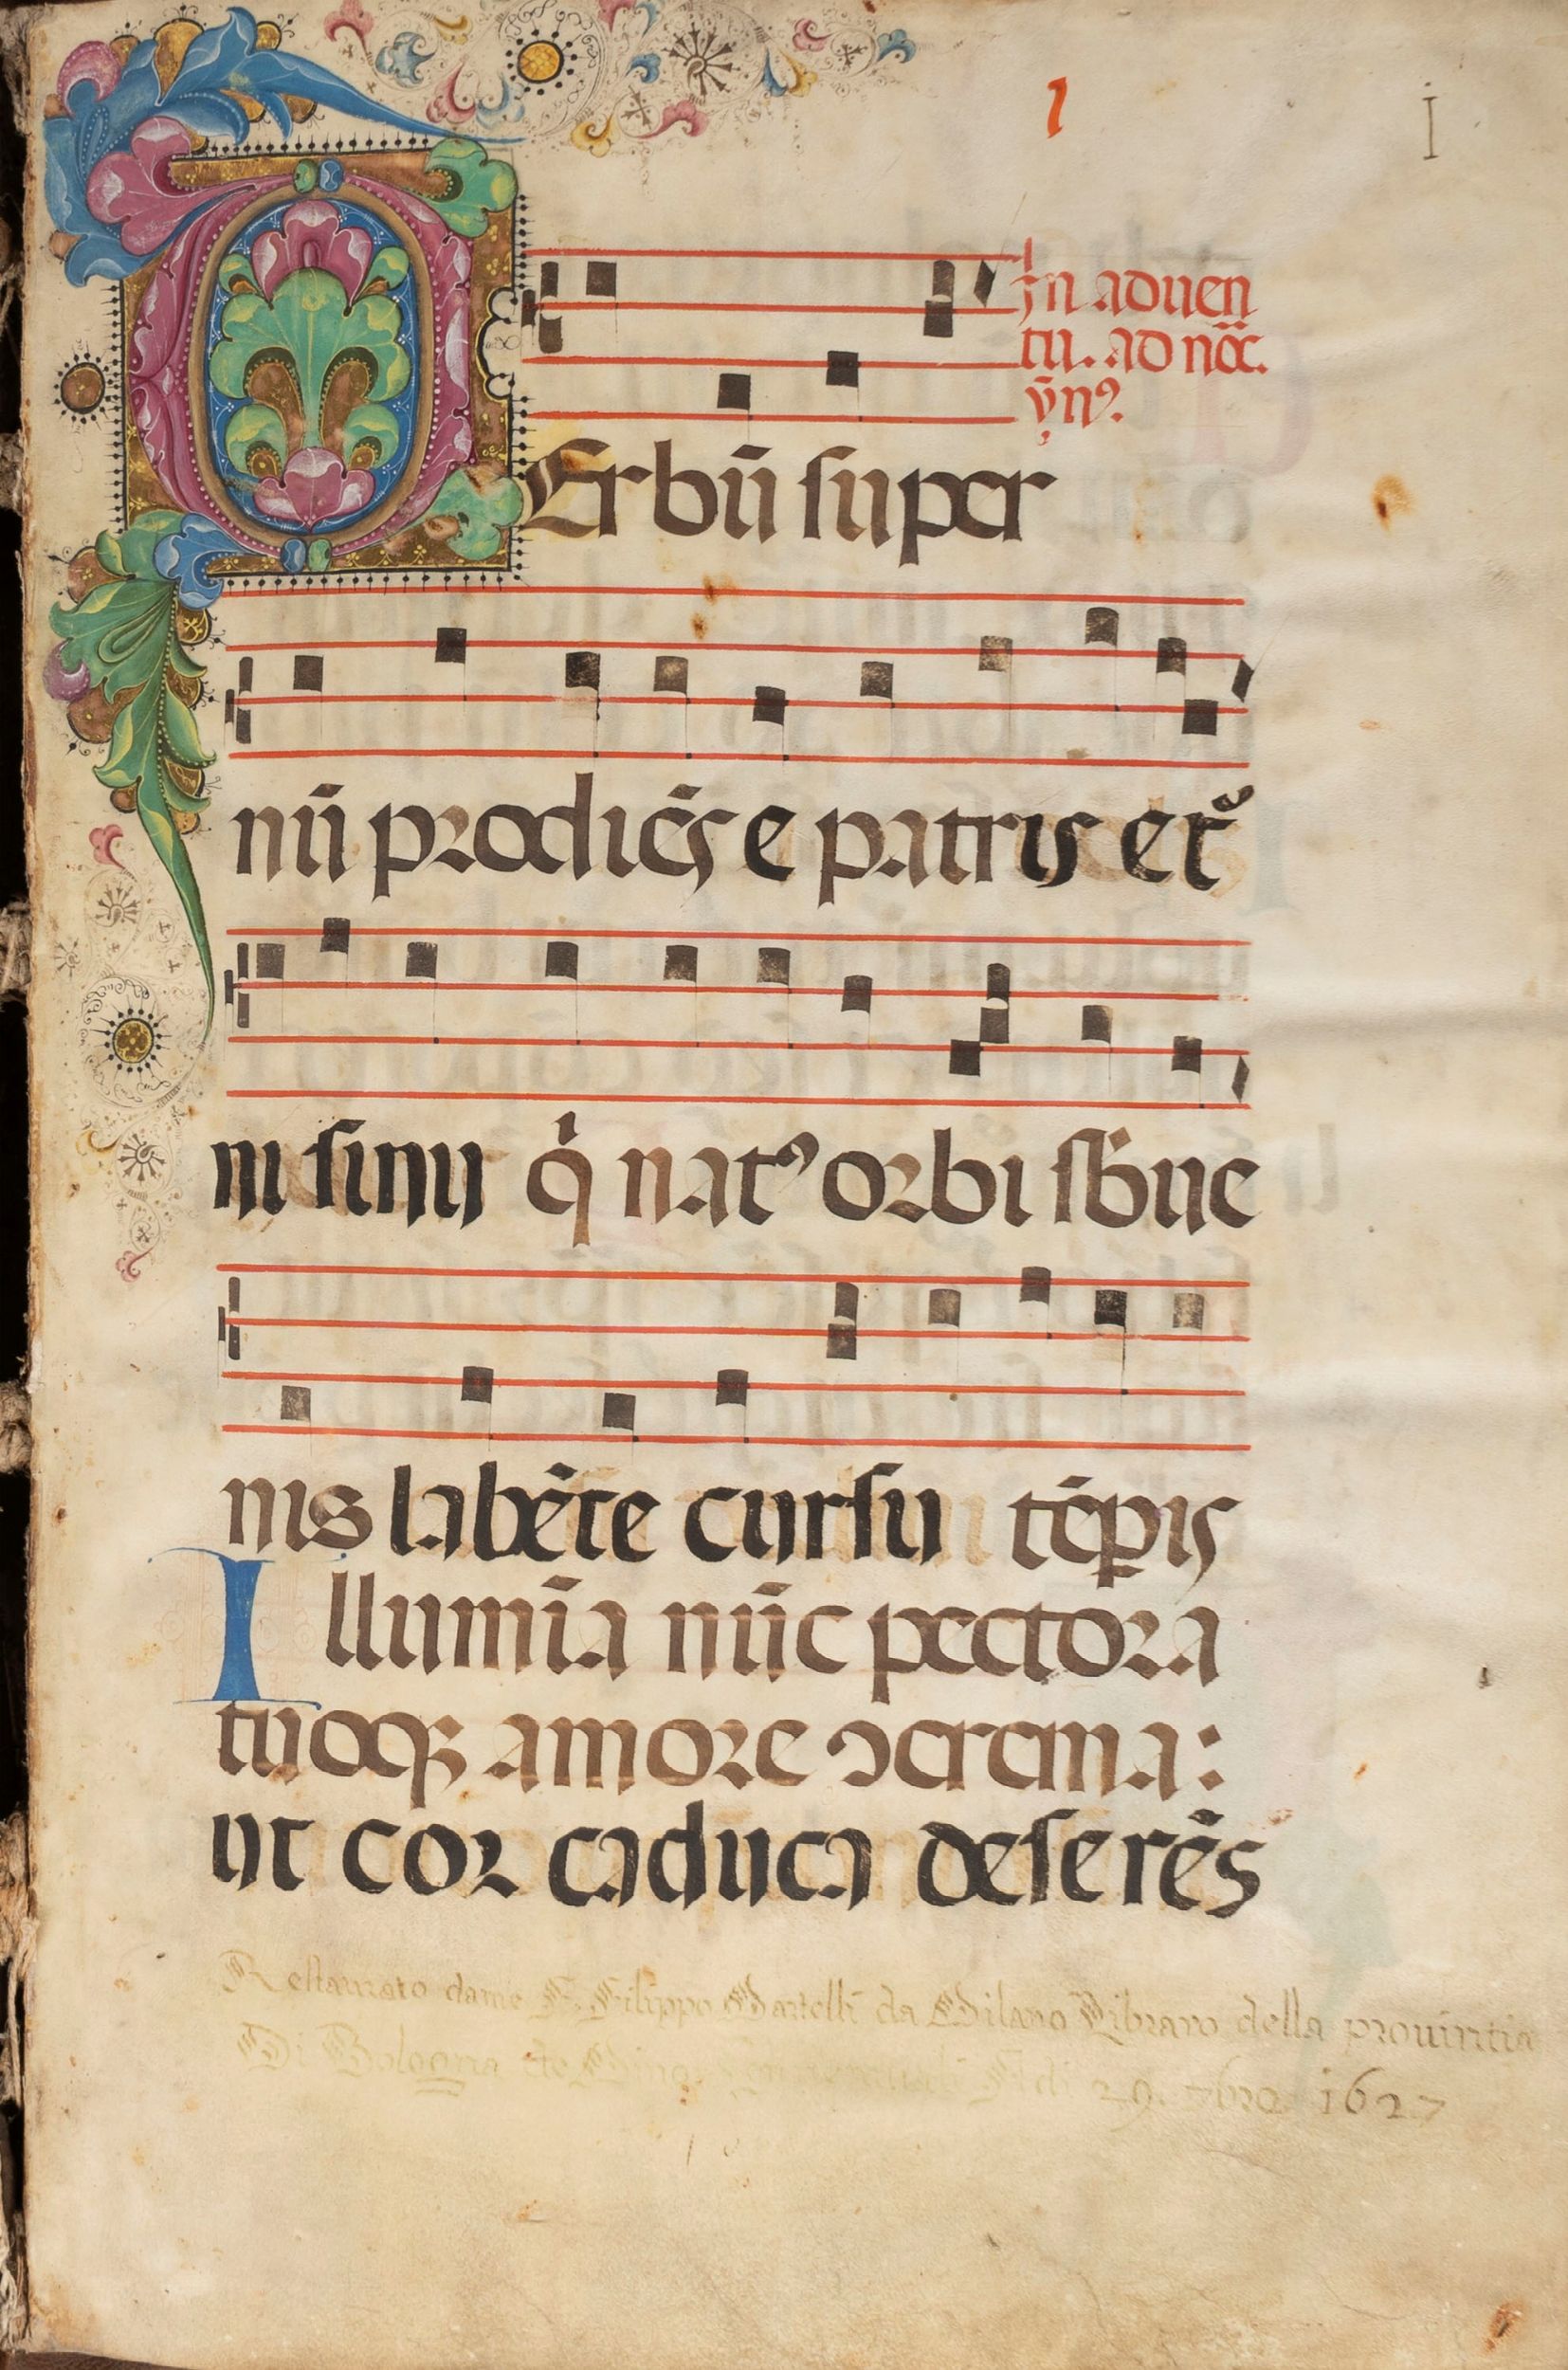 1 I
In aduen
tu. ad noc̄.
ẏnꝰ.
VErbū super
nū prodiēs e patris et̾
ni sinu qͥ natꝰ orbi sb̄ue
nis labēte cursu tēꝑis
Illumīa nūc pectora
tuoqꝫ amore ↄcrema:
ut cor caduca deserēs
Restaurato da me F. Filippo Martelli da Milano Libraro della prouintia
Di Bologna 29. 7bre 1627